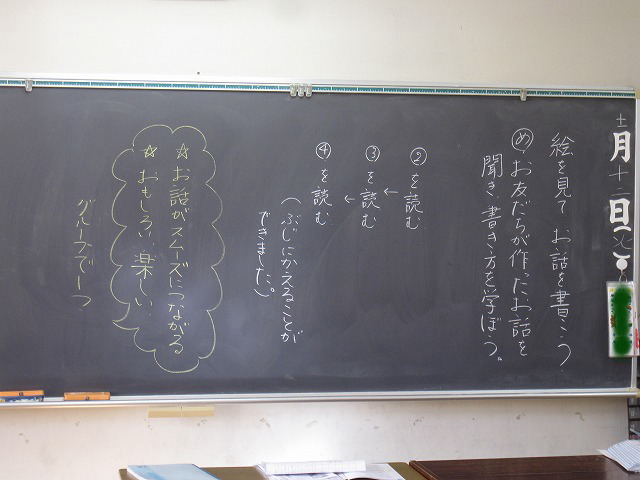 十一月十二日(火)
絵を見て お話を書こう
め お友だちが作ったお話を
聞き、書き方を学ぼう。
②を読む
↓
③を読む
↓
④を読む
(ぶじにかえることが
できました。)
☆お話がスムーズにつながる
☆おもしろい、楽しい
グループで一つ